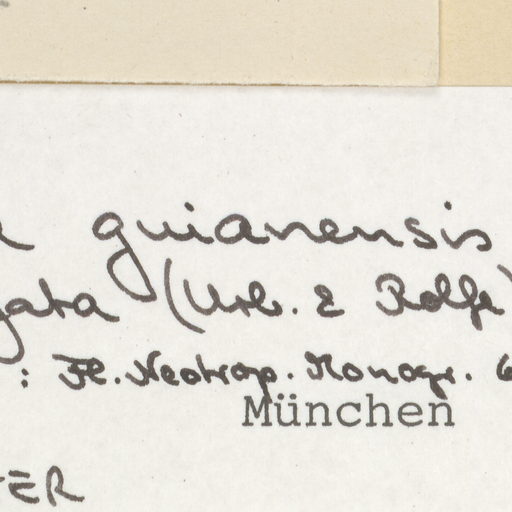 guianensis
gata (Urb. & Rolfe)
: Fl. Neotrop. Monogr. 6
München
TER